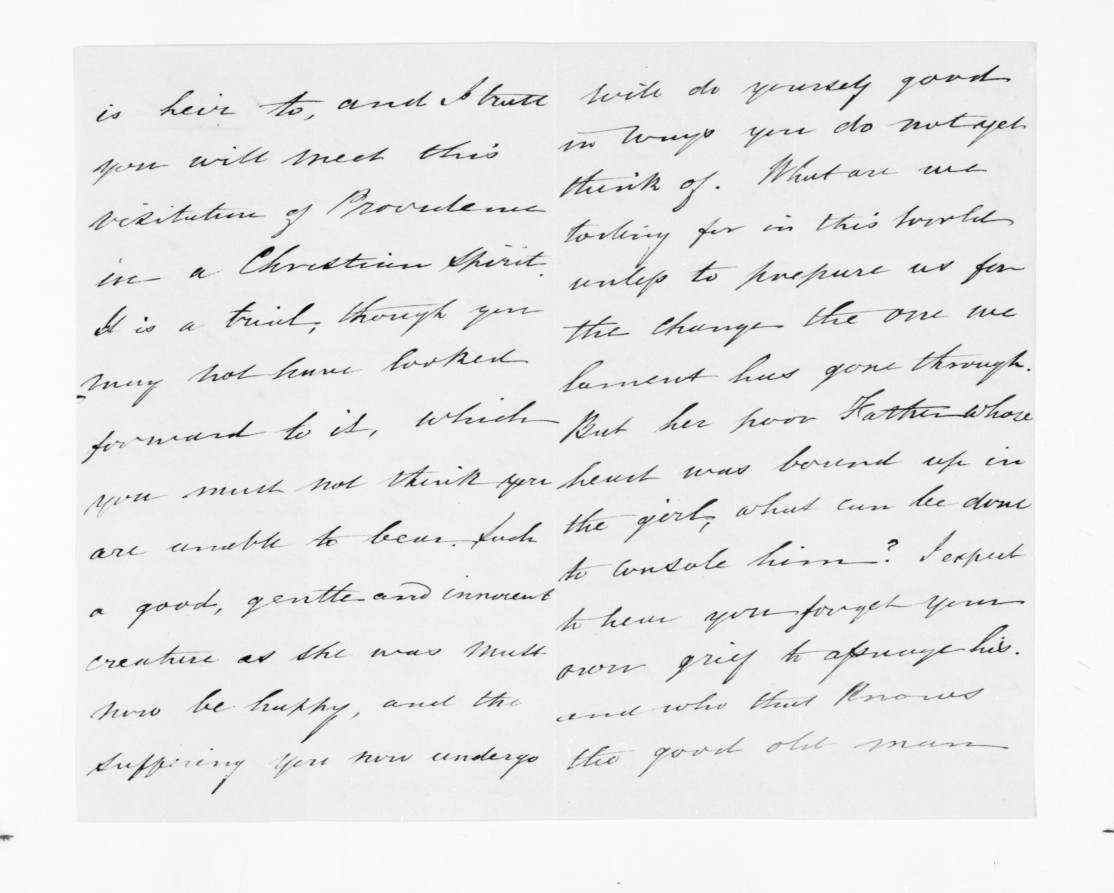 is heir to, and I trust
you will meet this
visitation of Providence
in a Christian spirit.
It is a trial, though you
may not have looked
forward to it, which
you must not think you
are unable to bear. Such
a good, gentle and innocent
creature as she was must
now be happy, and the
suffering you now undergo
will do yourself good
in ways you do not yet
think of. What are we
toiling for in this world
unless to prepare us for
the change the one we
lament has gone through.
But her poor Father whose
heart was bound up in
the girl, what can be done
to console him? I expect
to hear you forget your
own grief to assuage his.
and who that knows
the good old man